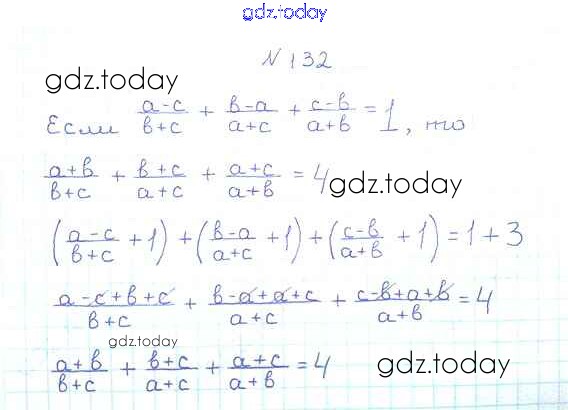 gdz.today
N 132
gdz.today
Если (a-c)/(в+c) + (в-a)/(a+c) + (c-в)/(a+в) = 1, то
(a+в)/(в+c) + (в+c)/(a+c) + (a+c)/(a+в) = 4
gdz.today
((a-c)/(в+c) + 1) + ((в-a)/(a+c) + 1) + ((c-в)/(a+в) + 1) = 1 + 3
(a-c+в+c)/(в+c) + (в-a+a+c)/(a+c) + (c-в+a+в)/(a+в) = 4
gdz.today
(a+в)/(в+c) + (в+c)/(a+c) + (a+c)/(a+в) = 4
gdz.today